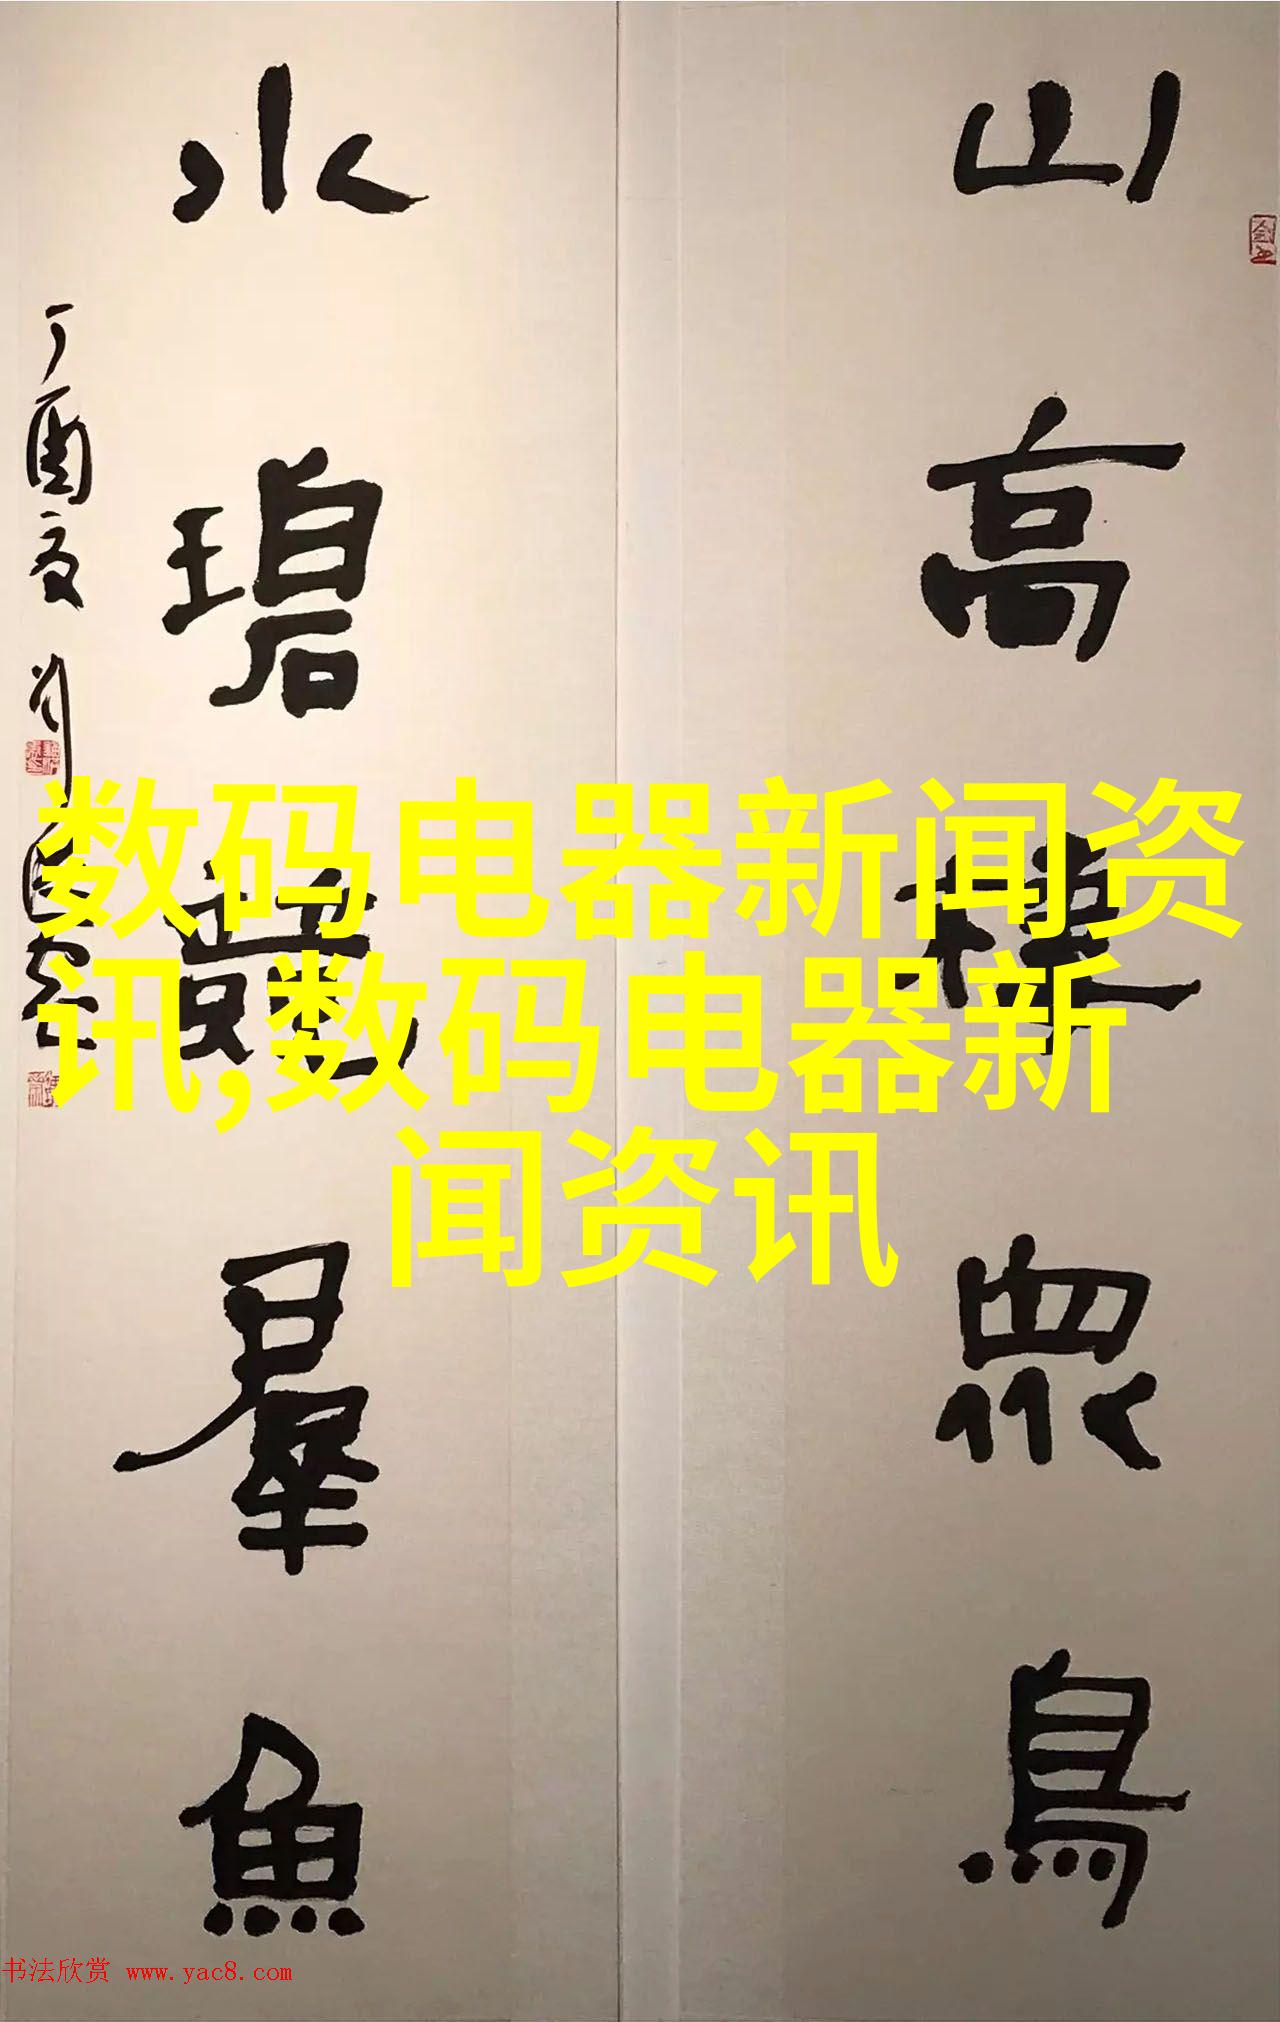 山高棲眾鳥
水碧羣魚
丁酉夏
数码电器新闻资
讯,数码电器新
闻资讯
书法欣赏 www.yac8.com